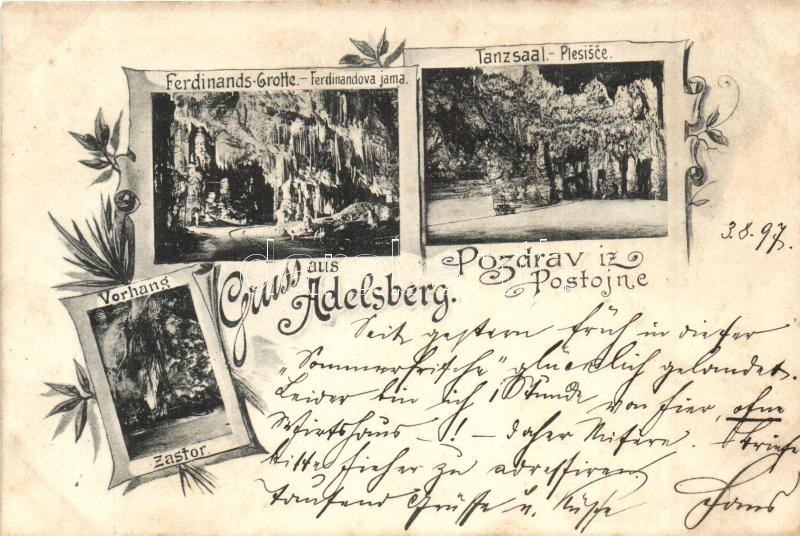 Ferdinands-Grotte.- Ferdinandova jama.
Tanzsaal.- Plesišče.
3.8.97.
Gruss aus Adelsberg.
Pozdrav iz
Postojne
Vorhang
zastor
Seit gestern früh in dieser
„Sommerfrische" glücklich gelandet.
Leider bin ich 1 Stunde von hier, ohne
Wirtshaus -!- daher Misere. Briefe
bitte hieher zu adressiren.
Tausend Grüsse u. Küsse Hans